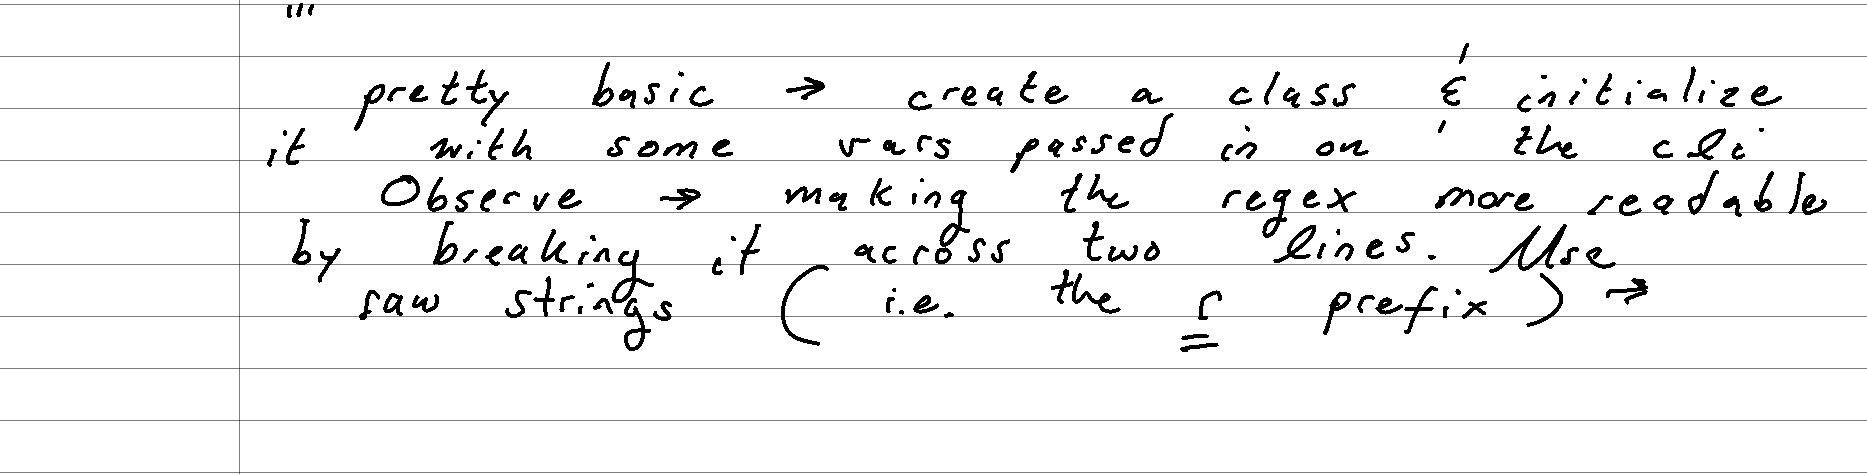 '''
pretty basic → create a class & initialize
it with some vars passed in on the cli
Observe → making the regex more readable
by breaking it across two lines. Use
raw strings (i.e. the r prefix) →